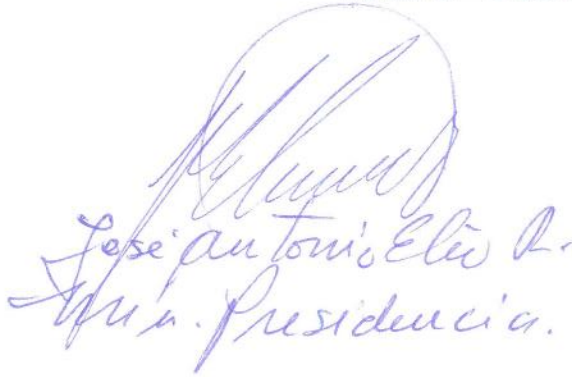 José Antonio Elio R.
Min. Presidencia.